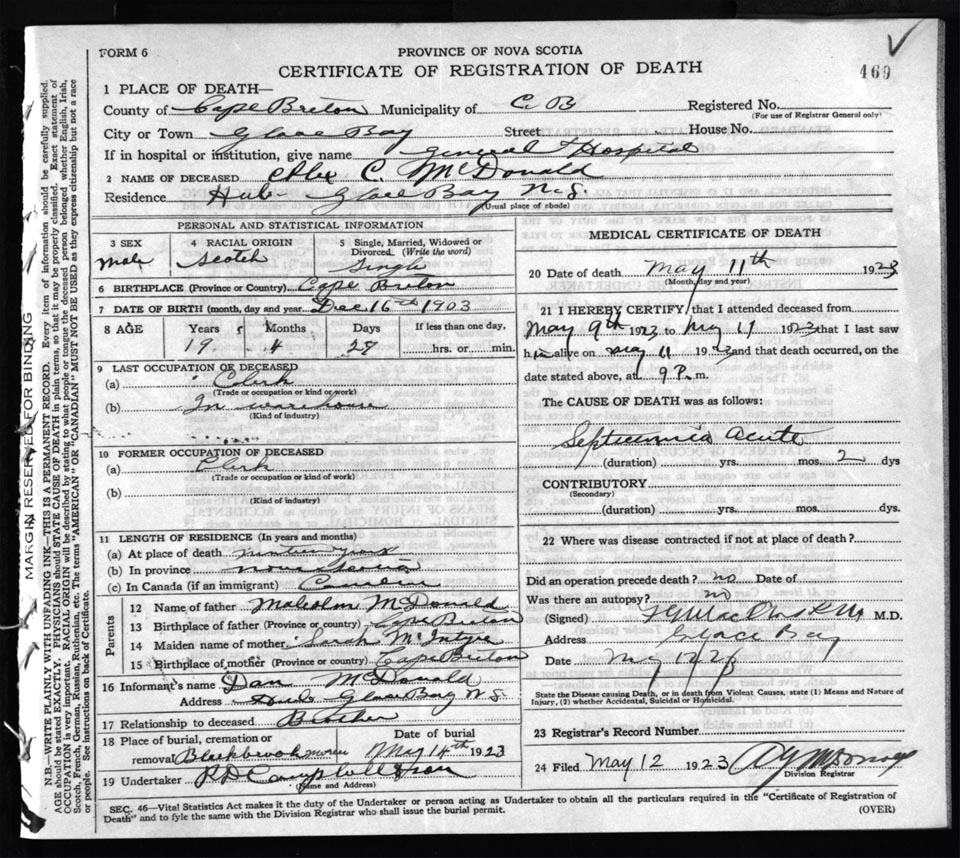 FORM 6
PROVINCE OF NOVA SCOTIA
CERTIFICATE OF REGISTRATION OF DEATH
469
1 PLACE OF DEATH—
County of Cape Breton Municipality of C. B Registered No.
(For use of Registrar General only)
City or Town Glace Bay Street House No.
If in hospital or institution, give name General Hospital
2 NAME OF DECEASED Alex C. McDonald
Residence Hub Glace Bay N.S.
(Usual place of abode)
PERSONAL AND STATISTICAL INFORMATION
3 SEX 4 RACIAL ORIGIN 5 Single, Married, Widowed or Divorced (Write the word)
Male Scotch Single
6 BIRTHPLACE (Province or Country) Cape Breton
7 DATE OF BIRTH (month, day and year) Dec 16th 1903
8 AGE Years Months Days If less than one day,
19 4 28 hrs. or min.
9 LAST OCCUPATION OF DECEASED
(a) Clerk
(Trade or occupation or kind or work)
(b) In warehouse
(Kind of industry)
10 FORMER OCCUPATION OF DECEASED
(a) Clerk
(Trade or occupation or kind of work)
(b)
(Kind of industry)
11 LENGTH OF RESIDENCE (In years and months)
(a) At place of death nineteen years
(b) In province Nova Scotia
(c) In Canada (if an immigrant) Canada
Parents
12 Name of father Malcolm McDonald
13 Birthplace of father (Province or country) Cape Breton
14 Maiden name of mother Sarah McIntyre
15 Birthplace of mother (Province or country) Cape Breton
16 Informant's name Dan McDonald
Address Glace Bay N.S.
17 Relationship to deceased Brother
18 Place of burial, cremation or removal Blackbrook Date of burial May 14th 1923
19 Undertaker R D Campbell & son
(Name and Address)
MEDICAL CERTIFICATE OF DEATH
20 Date of death May 11th 1923
(Month, day and year)
21 I HEREBY CERTIFY that I attended deceased from
May 9th 1923 to May 11 1923 that I last saw
him alive on May 11 1923 and that death occurred, on the
date stated above, at 9 P. m.
The CAUSE OF DEATH was as follows:
Septicemia Acute
(duration) yrs. mos. 2 dys
CONTRIBUTORY
(Secondary)
(duration) yrs. mos. dys.
22 Where was disease contracted if not at place of death?
Did an operation precede death? no Date of
Was there an autopsy? no
(Signed) M.D.
Address Glace Bay
Date May 12 23
State the Disease causing Death, or in death from Violent Causes, state (1) Means and Nature of
Injury, (2) whether Accidental, Suicidal or Homicidal.
23 Registrar's Record Number
24 Filed May 12 1923
Division Registrar
SEC. 46—Vital Statistics Act makes it the duty of the Undertaker or person acting as Undertaker to obtain all the particulars required in the "Certificate of Registration of
Death" and to fyle the same with the Division Registrar who shall issue the burial permit. (OVER)
MARGIN RESERVED FOR BINDING
N.B.—WRITE PLAINLY WITH UNFADING INK—THIS IS A PERMANENT RECORD. Every item of information should be carefully supplied.
AGE should be stated EXACTLY. PHYSICIANS should STATE CAUSE OF DEATH in plain terms, so that it may be properly classified. Exact statement of
OCCUPATION is very important. RACIAL ORIGIN will be described by stating to what people or tongue the deceased person belonged whether English, Irish,
Scotch, French, German, Russian, Ruthenian, etc. The terms "AMERICAN" OR "CANADIAN" MUST NOT BE USED as they express citizenship but not a race
or people. See instructions on back of Certificate.